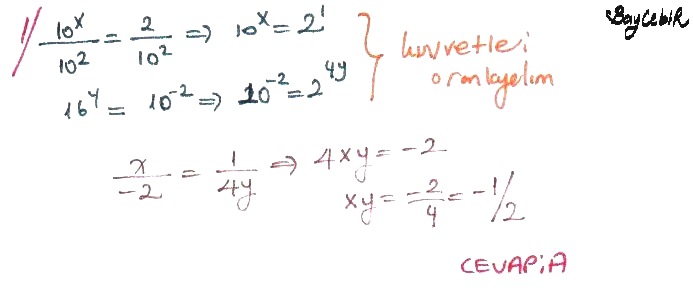 BayCebiR
1) 10^x/10^2 = 2/10^2 ⇒ 10^x = 2^1
16^y = 10^-2 ⇒ 10^-2 = 2^4y
} kuvvetleri
oranlayalım
x/-2 = 1/4y ⇒ 4xy = -2
xy = -2/4 = -1/2
CEVAP: A